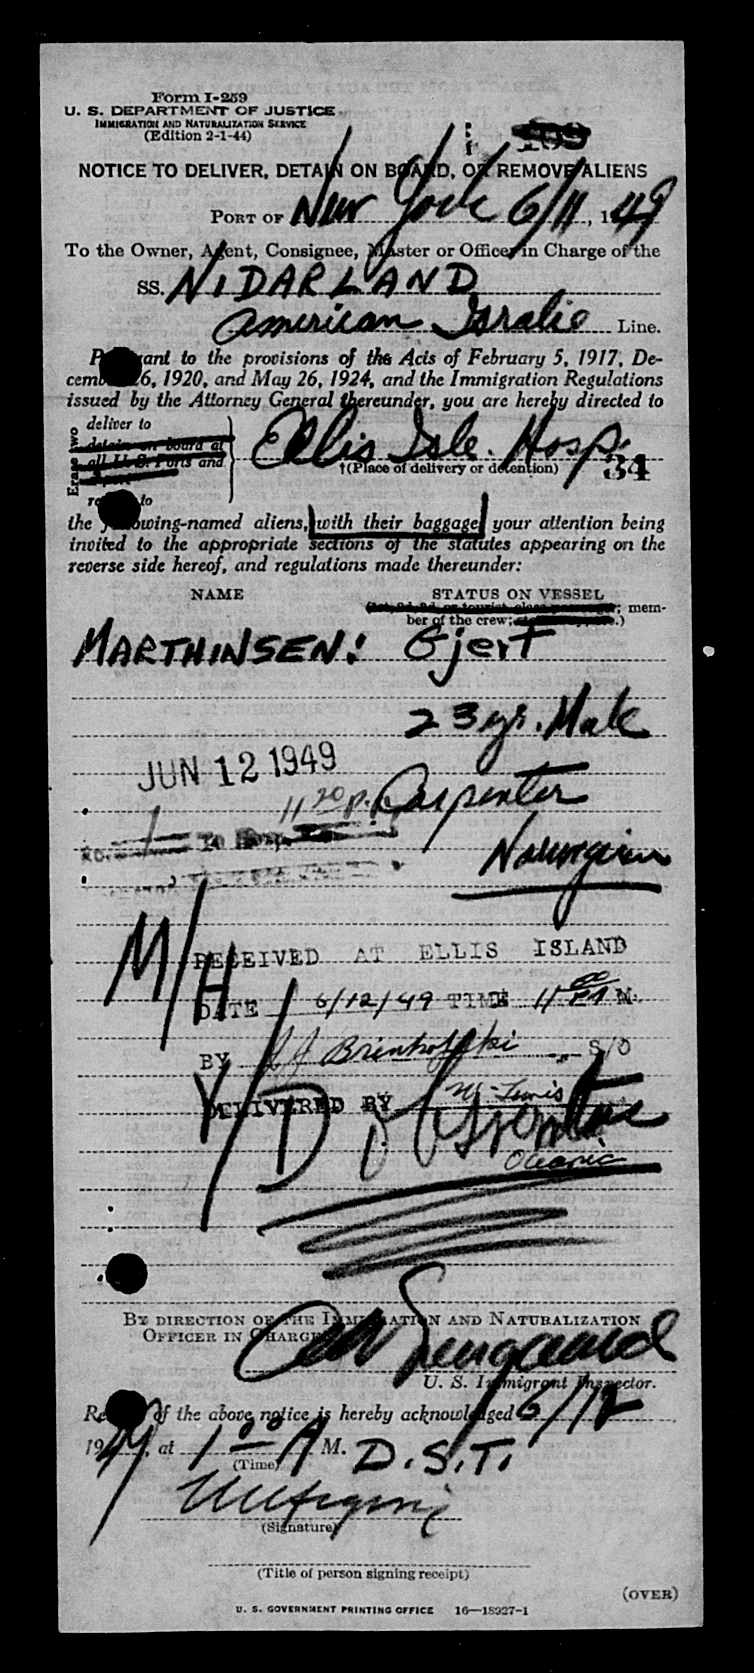 Form I-259
U. S. DEPARTMENT OF JUSTICE
IMMIGRATION AND NATURALIZATION SERVICE
(Edition 2-1-44)
NOTICE TO DELIVER, DETAIN ON BOARD, OR REMOVE ALIENS
PORT OF New York 6/11, 1949
To the Owner, Agent, Consignee, Master or Officer in Charge of the
SS. NIDARLAND
American Isralie Line.
Pursuant to the provisions of the Acts of February 5, 1917, De-
cember 26, 1920, and May 26, 1924, and the Immigration Regulations
issued by the Attorney General thereunder, you are hereby directed to
Erase two
deliver to
detain on board at
all U. S. Ports and
Ellis Isle. Hosp.
†(Place of delivery or detention)
34
to
the following-named aliens, with their baggage, your attention being
invited to the appropriate sections of the statutes appearing on the
reverse side hereof, and regulations made thereunder:
NAME STATUS ON VESSEL
; mem-
ber of the crew; .)
MARTHINSEN: Gjert
23 yr. Male
JUN 12 1949
11 20 P. Carpenter
Norwegian
M/H
RECEIVED AT ELLIS ISLAND
DATE 6/12/49 TIME 11 00 M.
BY S/O
DELIVERED BY
Oceanic
BY DIRECTION OF THE IMMIGRATION AND NATURALIZATION
OFFICER IN CHARGE
U. S. Immigrant Inspector.
of the above notice is hereby acknowledged 6/12
1949, at 1 00 A M. D.S.T.
(Time)
(Signature)
(Title of person signing receipt)
(OVER)
U. S. GOVERNMENT PRINTING OFFICE 16—18327-1